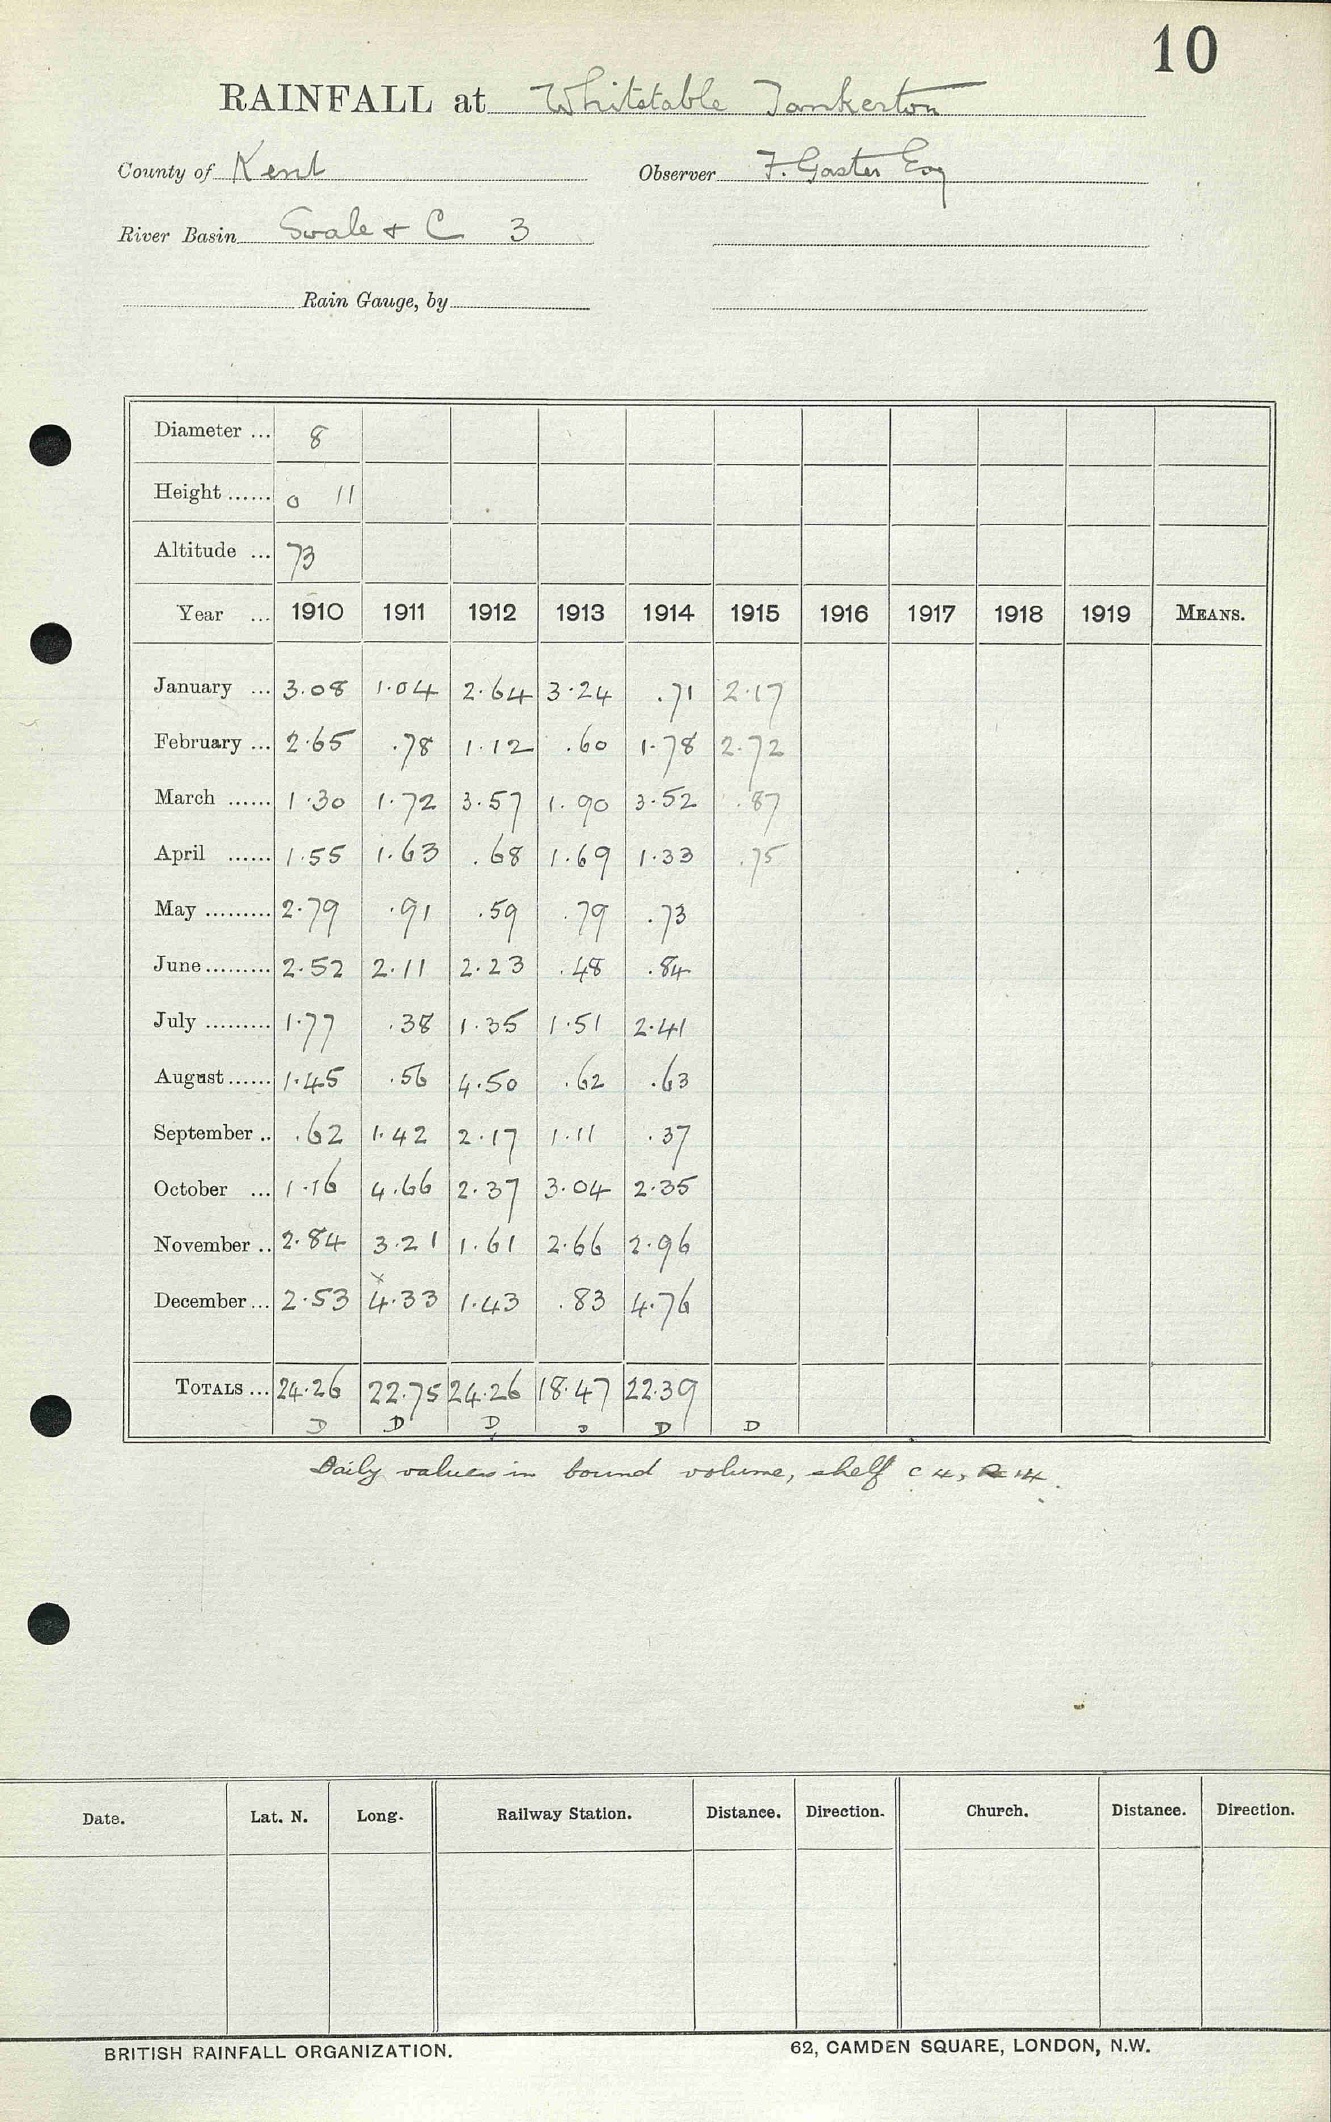 10
RAINFALL at Whitstable Tankerton
County of Kent Observer F. Gaster Esq
River Basin Swale & C 3
Rain Gauge, by
Diameter ... 8
Height ...... 0 11
Altitude ... 73
Year ... 1910 1911 1912 1913 1914 1915 1916 1917 1918 1919 MEANS.
January ... 3.08 1.04 2.64 3.24 .71 2.17
February ... 2.65 .78 1.12 .60 1.78 2.72
March ...... 1.30 1.72 3.57 1.90 3.52 .87
April ...... 1.55 1.63 .68 1.69 1.33 .75
May ......... 2.79 .91 .59 .79 .73
June ......... 2.52 2.11 2.23 .48 .84
July ......... 1.77 .38 1.35 1.51 2.41
August ...... 1.45 .56 4.50 .62 .63
September .. .62 1.42 2.17 1.11 .37
October ... 1.16 4.66 2.37 3.04 2.35
November .. 2.84 3.21 1.61 2.66 2.96
x
December ... 2.53 4.33 1.43 .83 4.76
TOTALS ... 24.26 22.75 24.26 18.47 22.39
D D D D D D
Daily values in bound volume, shelf C 4, 14.
Date. Lat. N. Long. Railway Station. Distance. Direction. Church. Distance. Direction.
BRITISH RAINFALL ORGANIZATION. 62, CAMDEN SQUARE, LONDON, N.W.